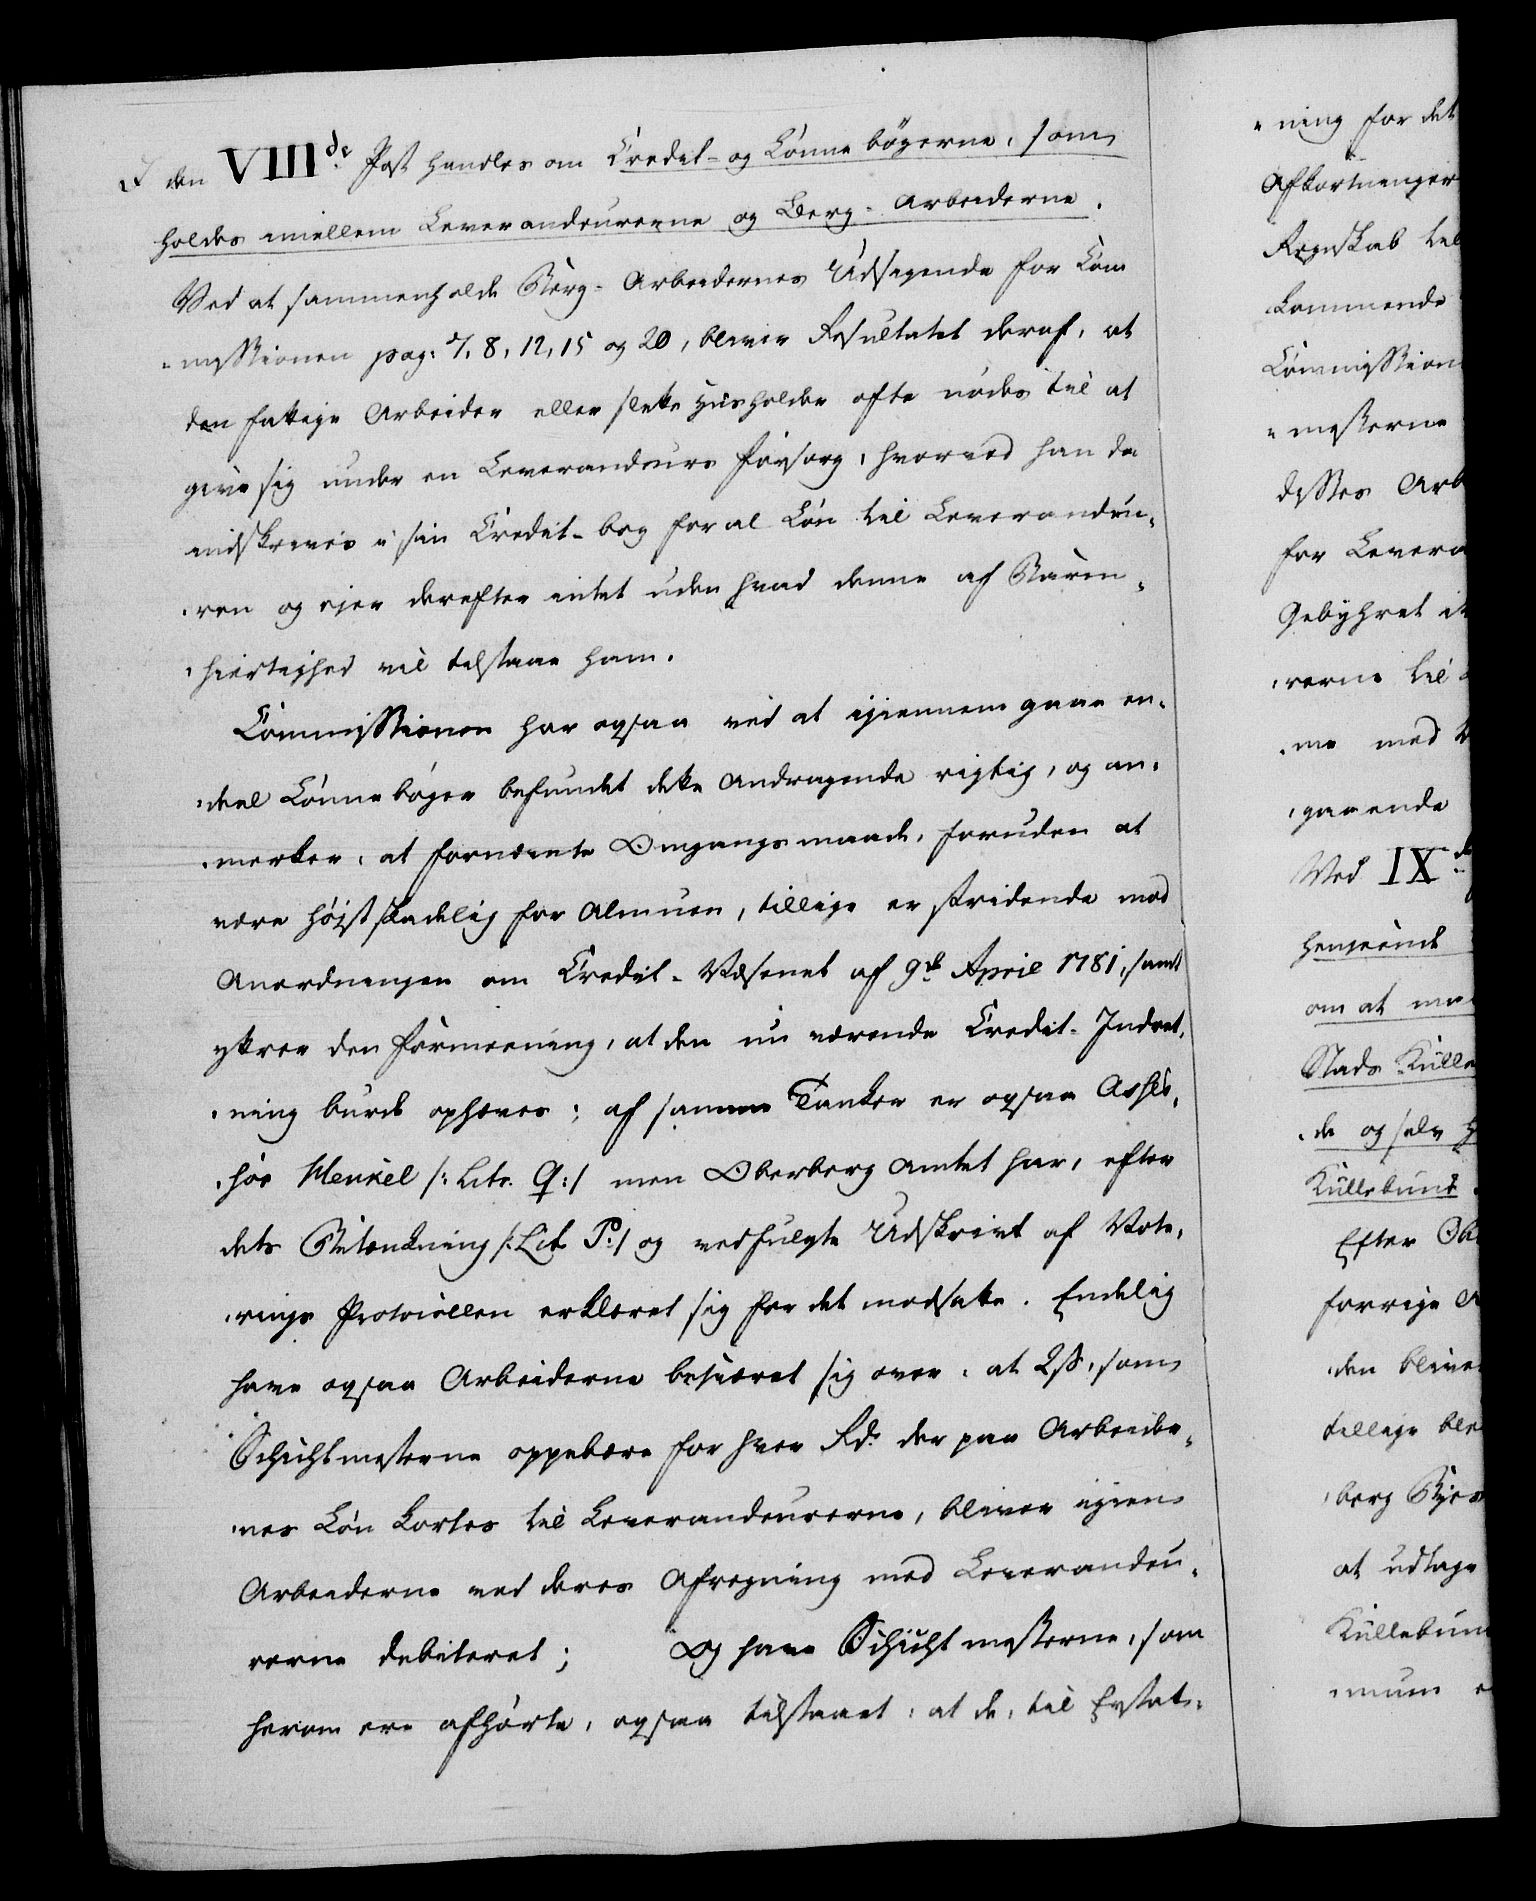 I den VIII de Post handles om Credit- og Lønne bøgerne, som
holdes imellem Leverandeurerne og Berg-Arbeiderne.
Ved at sammenholde Berg-Arbeidernes Udsigende for Com
-missionen pag: 7, 8, 12, 15 og 20, bliver Resultatet deraf, at
den fattige Arbeider eller slette Huusholder ofte nødes til at
give sig under en Leverandeurs Forsorg, hvorved han da
indskrives i sin Credit-bog for al Løn til Leverandeu-
ren og ejer derefter intet uden hvad denne af Barm-
hiertighed vil tilstaae ham.
Commissionen har ogsaa ved at igiennemgaae en-
deel Lønnebøger befundet dette Andragende rigtig, og an-
merker, at fornevnte Omgangsmaade, foruden at
være højst skadelig for Almuen, tillige er stridende mod
Anordningen om Credit-Væsenet af 9de April 1781, samt
yttrer den Formeening, at den nu værende Credit-Indret-
ning burde ophæves; af samme Tanker er ogsaa Asses-
sor Henkel /: Litr. Q :/ men Oberberg Amtet har, efter
dets Betænkning /: Lit P :/ og vedfulgte Udskrivt af Vote-
rings Protocollen erklæret sig for det modsatte. Endelig
have ogsaa Arbeiderne besværet sig over, at 2 ß, som
Schichtmesterne oppebære for hver Rd. der paa Arbeider-
nes Løn kortes til Leverandeurerne, bliver igien
Arbeiderne ved deres Afregning med Leverandeu-
rerne debiteret; Og have Schichtmesterne, som
herom ere afhørte, ogsaa tilstaaet, at de, til Erstat-
ning for det
Afkortninger
Regnskab til
kommende
Commission
mesterne
disses Arb
for Levera
Gebyhret i
rerne til
me med
gaaende
Ved IX d
henseende
om at
Stads Kulle
de og selv
Kullebund
Efter Ob
forrige A
den blive
tillige ble
berg
at udtage
Kullebun